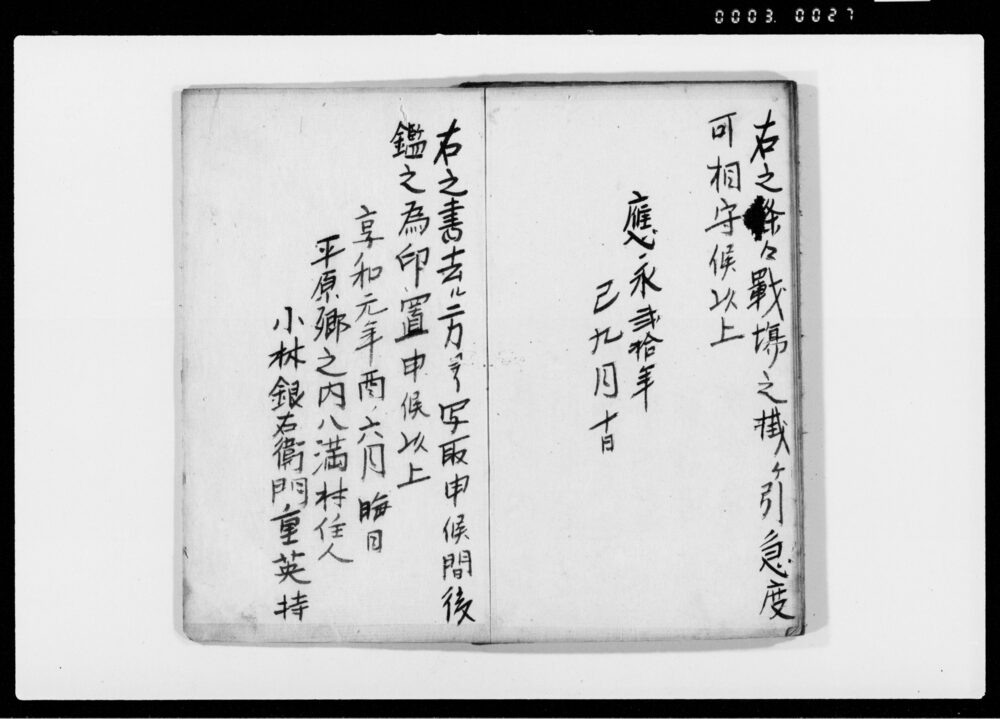 0003. 0027
右之條々戰場之掛ヶ引急度
可相守候以上
應永弐拾年
己九月十日
右之書去ル二方写取申候間後
鑑之為印置申候以上
享和元年酉ノ六月晦日
平原郷之内八満村住人
小林銀右衛門重英持